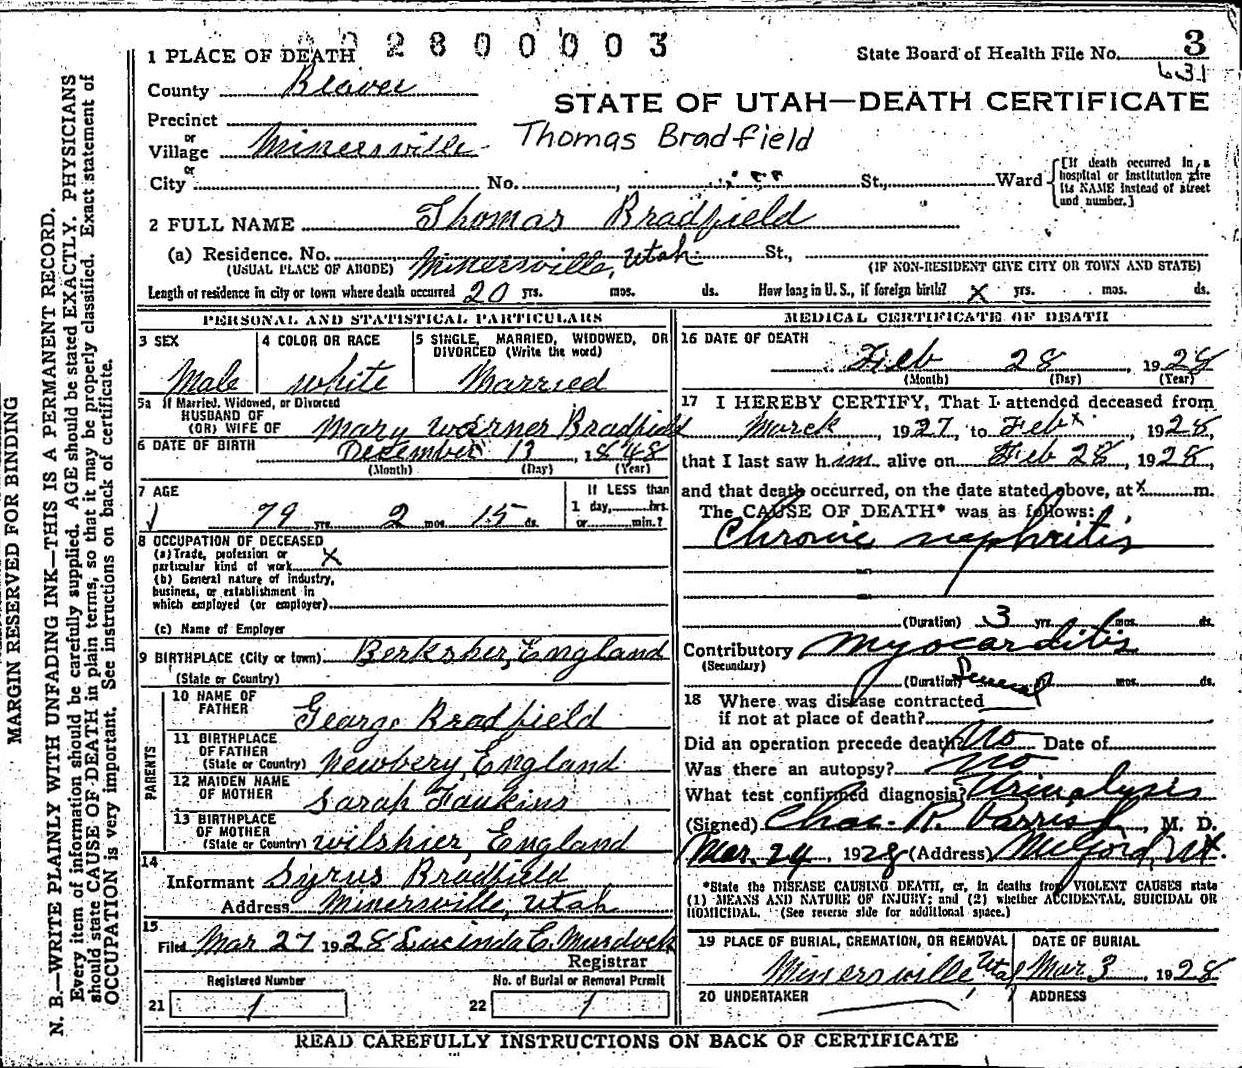 2 8 0 0 0 0 3
1 PLACE OF DEATH
State Board of Health File No. 3
631
County Beaver
STATE OF UTAH—DEATH CERTIFICATE
Precinct
or
Village Minersville
Thomas Bradfield
or
City No. , St., Ward
[If death occurred in a hospital or institution give its NAME instead of street and number.]
2 FULL NAME Thomas Bradfield
(a) Residence. No. Minersville, Utah St.,
(USUAL PLACE OF ABODE) (IF NON-RESIDENT GIVE CITY OR TOWN AND STATE)
Length of residence in city or town where death occurred 20 yrs. mos. ds. How long in U. S., if foreign birth? X yrs. mos. ds.
PERSONAL AND STATISTICAL PARTICULARS
3 SEX
Male
4 COLOR OR RACE
white
5 SINGLE, MARRIED, WIDOWED, OR
DIVORCED (Write the word)
Married
5a If Married, Widowed, or Divorced
HUSBAND OF
(OR) WIFE OF Mary Warner Bradfield
6 DATE OF BIRTH December 13, 1848
(Month) (Day) (Year)
7 AGE
79 yrs. 2 mos. 15 ds.
If LESS than
1 day, hrs.
or min.?
8 OCCUPATION OF DECEASED
(a) Trade, profession or
particular kind of work X
(b) General nature of industry,
business, or establishment in
which employed (or employer)
(c) Name of Employer
9 BIRTHPLACE (City or town) Berksher, England
(State or Country)
PARENTS
10 NAME OF
FATHER George Bradfield
11 BIRTHPLACE
OF FATHER
(State or Country) Newbery, England
12 MAIDEN NAME
OF MOTHER Sarah Faukins
13 BIRTHPLACE
OF MOTHER
(State or Country) wilshier, England
14
Informant Syrus Bradfield
Address Minersville, Utah
15
Filed Mar 27 1928 Lucinda E. Murdock
Registrar
Registered Number
21 1
No. of Burial or Removal Permit
22 1
MEDICAL CERTIFICATE OF DEATH
16 DATE OF DEATH
Feb 28 1928
(Month) (Day) (Year)
17 I HEREBY CERTIFY, That I attended deceased from
March, 1927, to Feb x, 1928,
that I last saw him alive on Feb 28, 1928,
and that death occurred, on the date stated above, at x m.
The CAUSE OF DEATH* was as follows:
Chronic nephritis
(Duration) 3 yrs. mos. ds.
Contributory Myocarditis
(Secondary)
(Duration) Several yrs. mos. ds.
18 Where was disease contracted
if not at place of death?
Did an operation precede death? No Date of
Was there an autopsy? No
What test confirmed diagnosis? Urinalysis
(Signed) Chas. R. Parrish, M. D.
Mar. 24, 1928 (Address) Milford, Ut.
*State the DISEASE CAUSING DEATH, or, in deaths from VIOLENT CAUSES state
(1) MEANS AND NATURE OF INJURY; and (2) whether ACCIDENTAL, SUICIDAL OR
HOMICIDAL. (See reverse side for additional space.)
19 PLACE OF BURIAL, CREMATION, OR REMOVAL
Minersville, Utah
DATE OF BURIAL
Mar 3 1928
20 UNDERTAKER
ADDRESS
READ CAREFULLY INSTRUCTIONS ON BACK OF CERTIFICATE
MARGIN RESERVED FOR BINDING
N. B.—WRITE PLAINLY WITH UNFADING INK—THIS IS A PERMANENT RECORD.
Every item of information should be carefully supplied. AGE should be stated EXACTLY. PHYSICIANS
should state CAUSE OF DEATH in plain terms, so that it may be properly classified. Exact statement of
OCCUPATION is very important. See instructions on back of certificate.